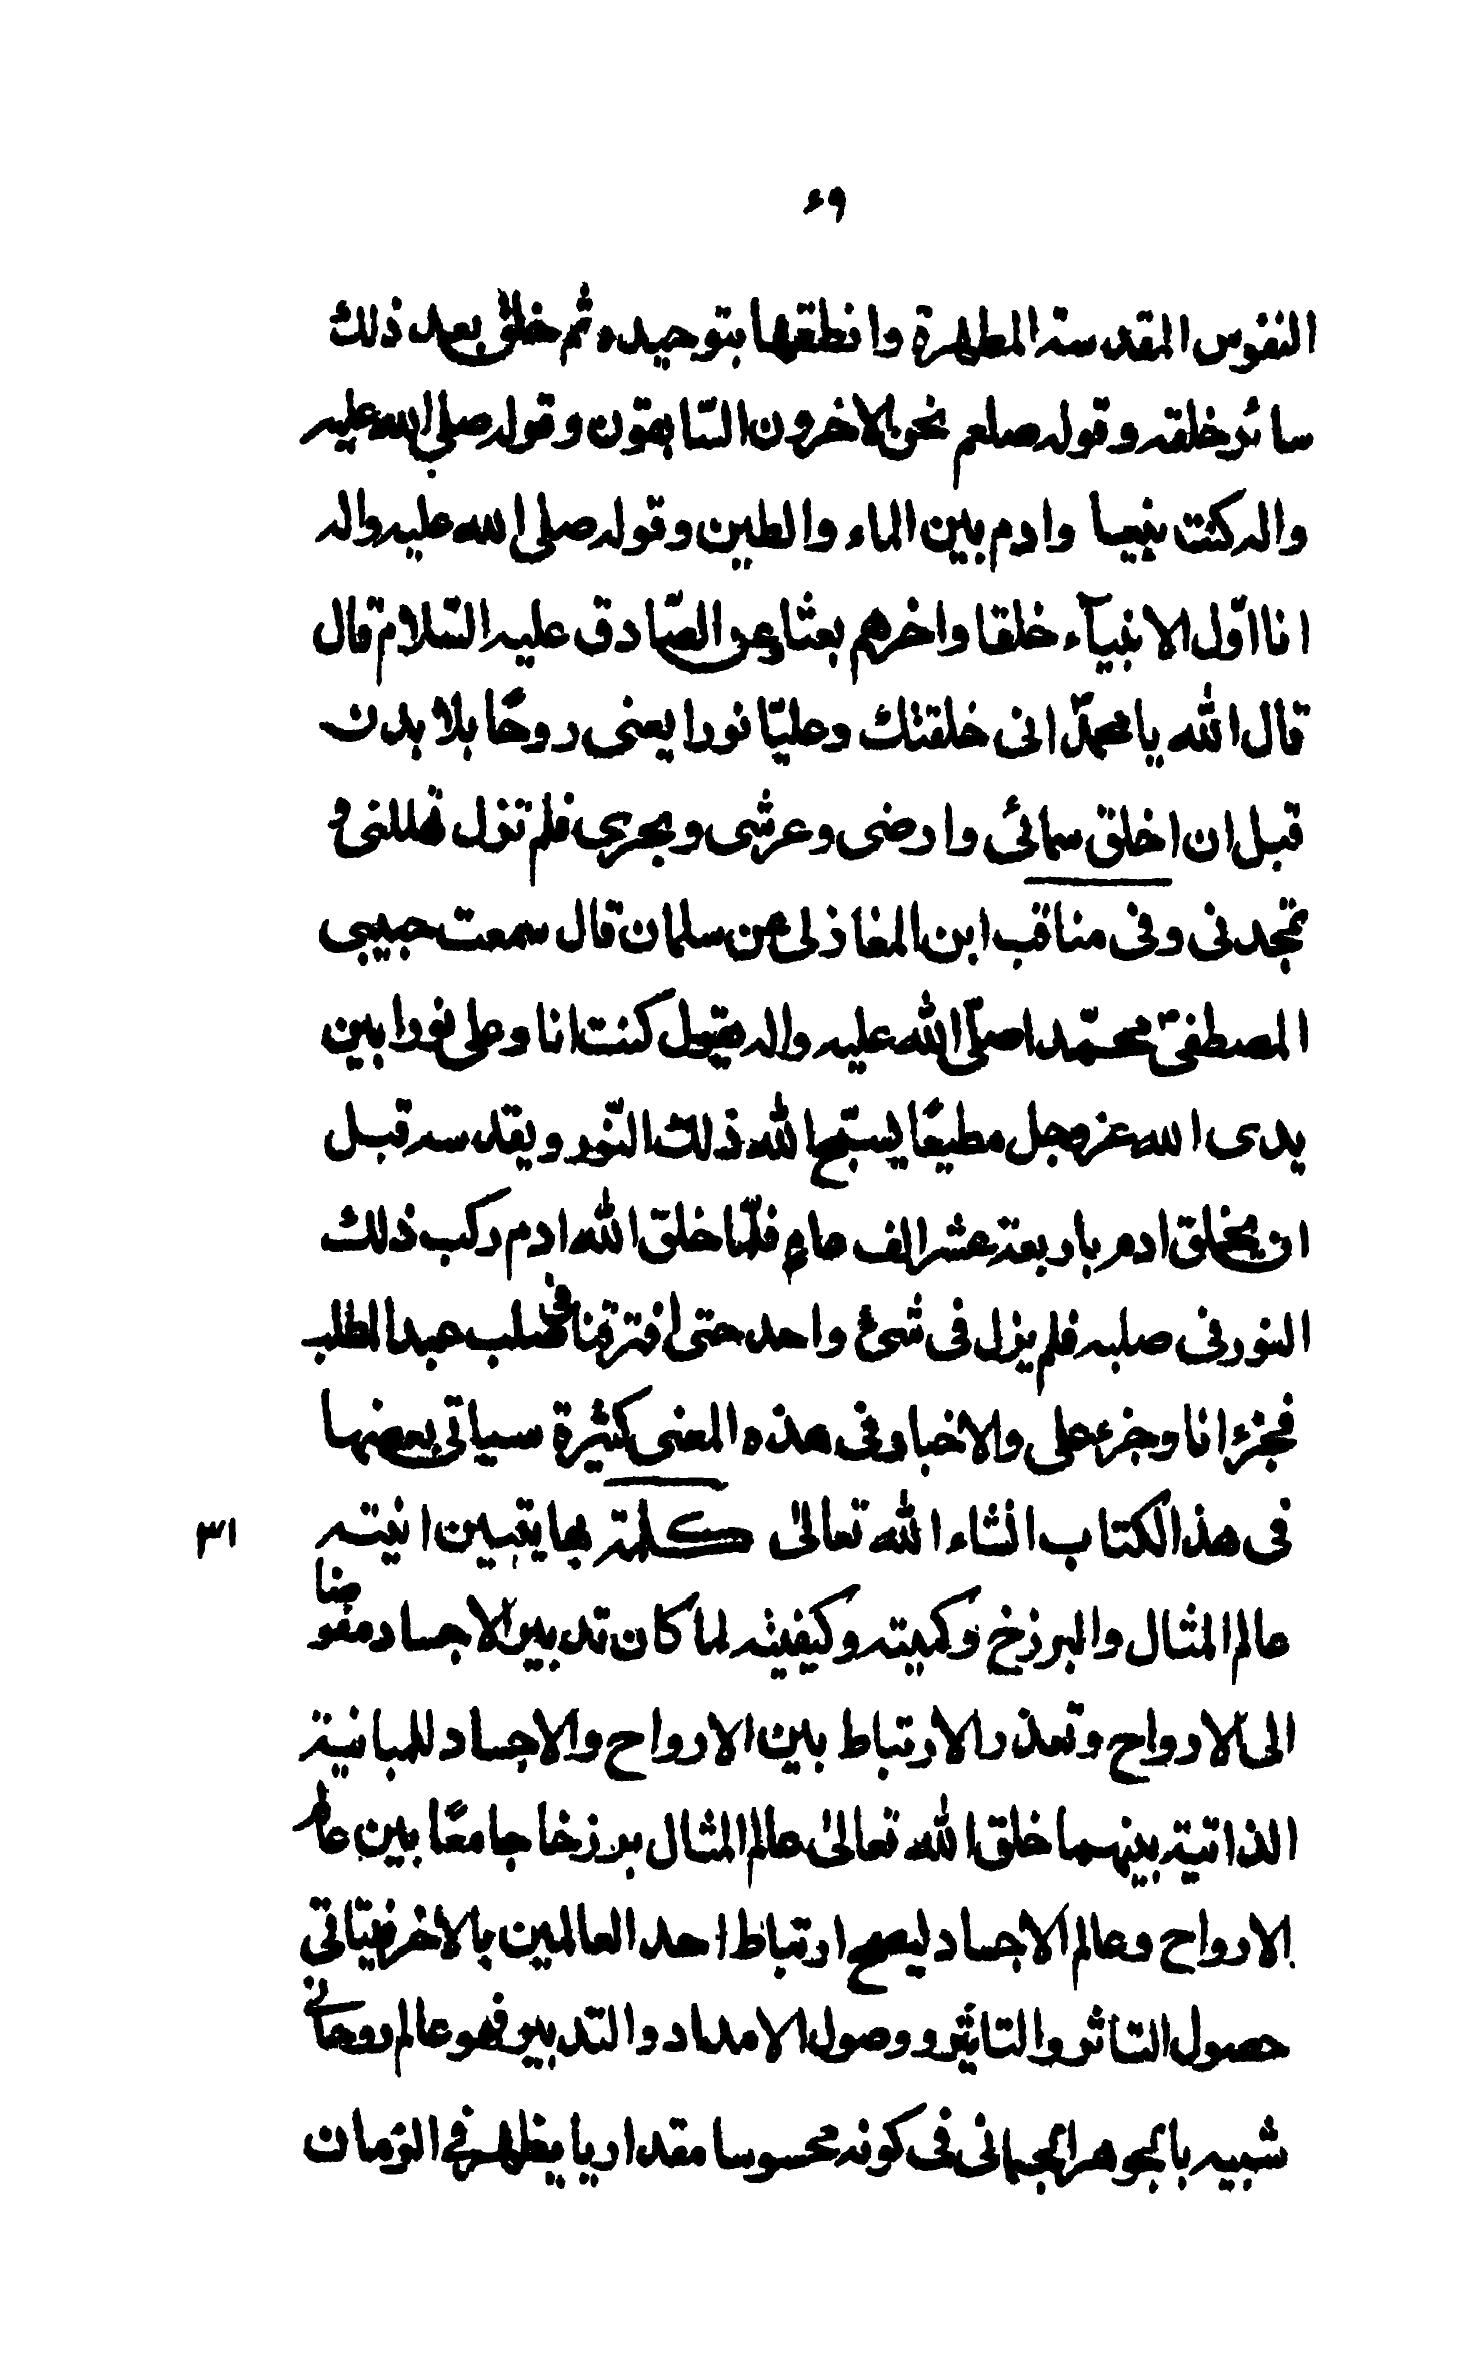 ٤٩
النفوس المقدسة المطهرة وانطقها بتوحيده ثم خلق بعد ذلك
سائر خلقه وقوله صلعم نحن الاخرون السّابقون وقوله صلى الله عليه
واله كنت نبيا وادم بين الماء والطين وقوله صلى الله عليه واله
انا اوّل الانبيآء خلقا واخرهم بعثا وعن الصّادق عليه السّلام قال
قال الله يا محمدّ انى خلقتك وعليّا نورا يعنى روحًا بلا بدن
قبل ان اخلق سمائى وارضى وعرشى وبحرى فلم تزل تهللنى و
تمجدنى وفى مناقب ابن المغازلى عن سلمان قال سمعت حبيبى
المصطفى محمّدا صلّى الله عليه واله يقول كنت انا وعلى نورا بين
يدى الله عز وجل مطيعًا يسبّح الله ذلك النّور ويقدسه قبل
ان يخلق ادم باربعة عشر الف عام فلمّا خلق الله ادم ركب ذلك
النور فى صلبه فلم يزل فى شئ واحد حتى افترقنا فى صلب عبد المطلب
فجزء انا وجزء على والاخبار فى هذه المعنى كثيرة سياتى بعضها
فى هذ الكتاب انشاء الله تعالىٰ كلمة بها يتبين انيته
٣١
عالم المثال والبرزخ وكميته وكيفيته لما كان تدبير الاجساد مفوضا
الى الارواح وتعذر الارتباط بين الارواح والاجساد للمباينة
الذاتية بينهما خلق الله تعالىٰ عالم المثال برزخا جامعًا بين عالم
الارواح وعالم الاجساد ليصح ارتباط احد العالمين بالاخر فيتاتى
حصول التاثر والتاثير ووصول الامداد والتدبير فهو عالم روحانى
شبيه بالجوهر الجسمانى فى كونه محسوسا مقداريا يظهر فى الزمان